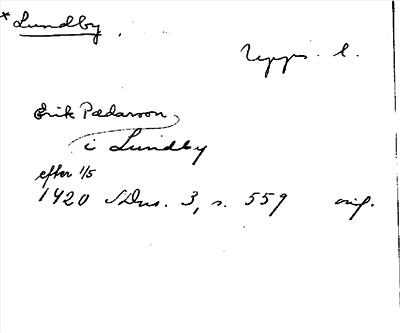 * Lundby.
Upps. l.
Erik Pædarson
i Lundby
efter 1/5
1420 SDns. 3, s. 559 orig.